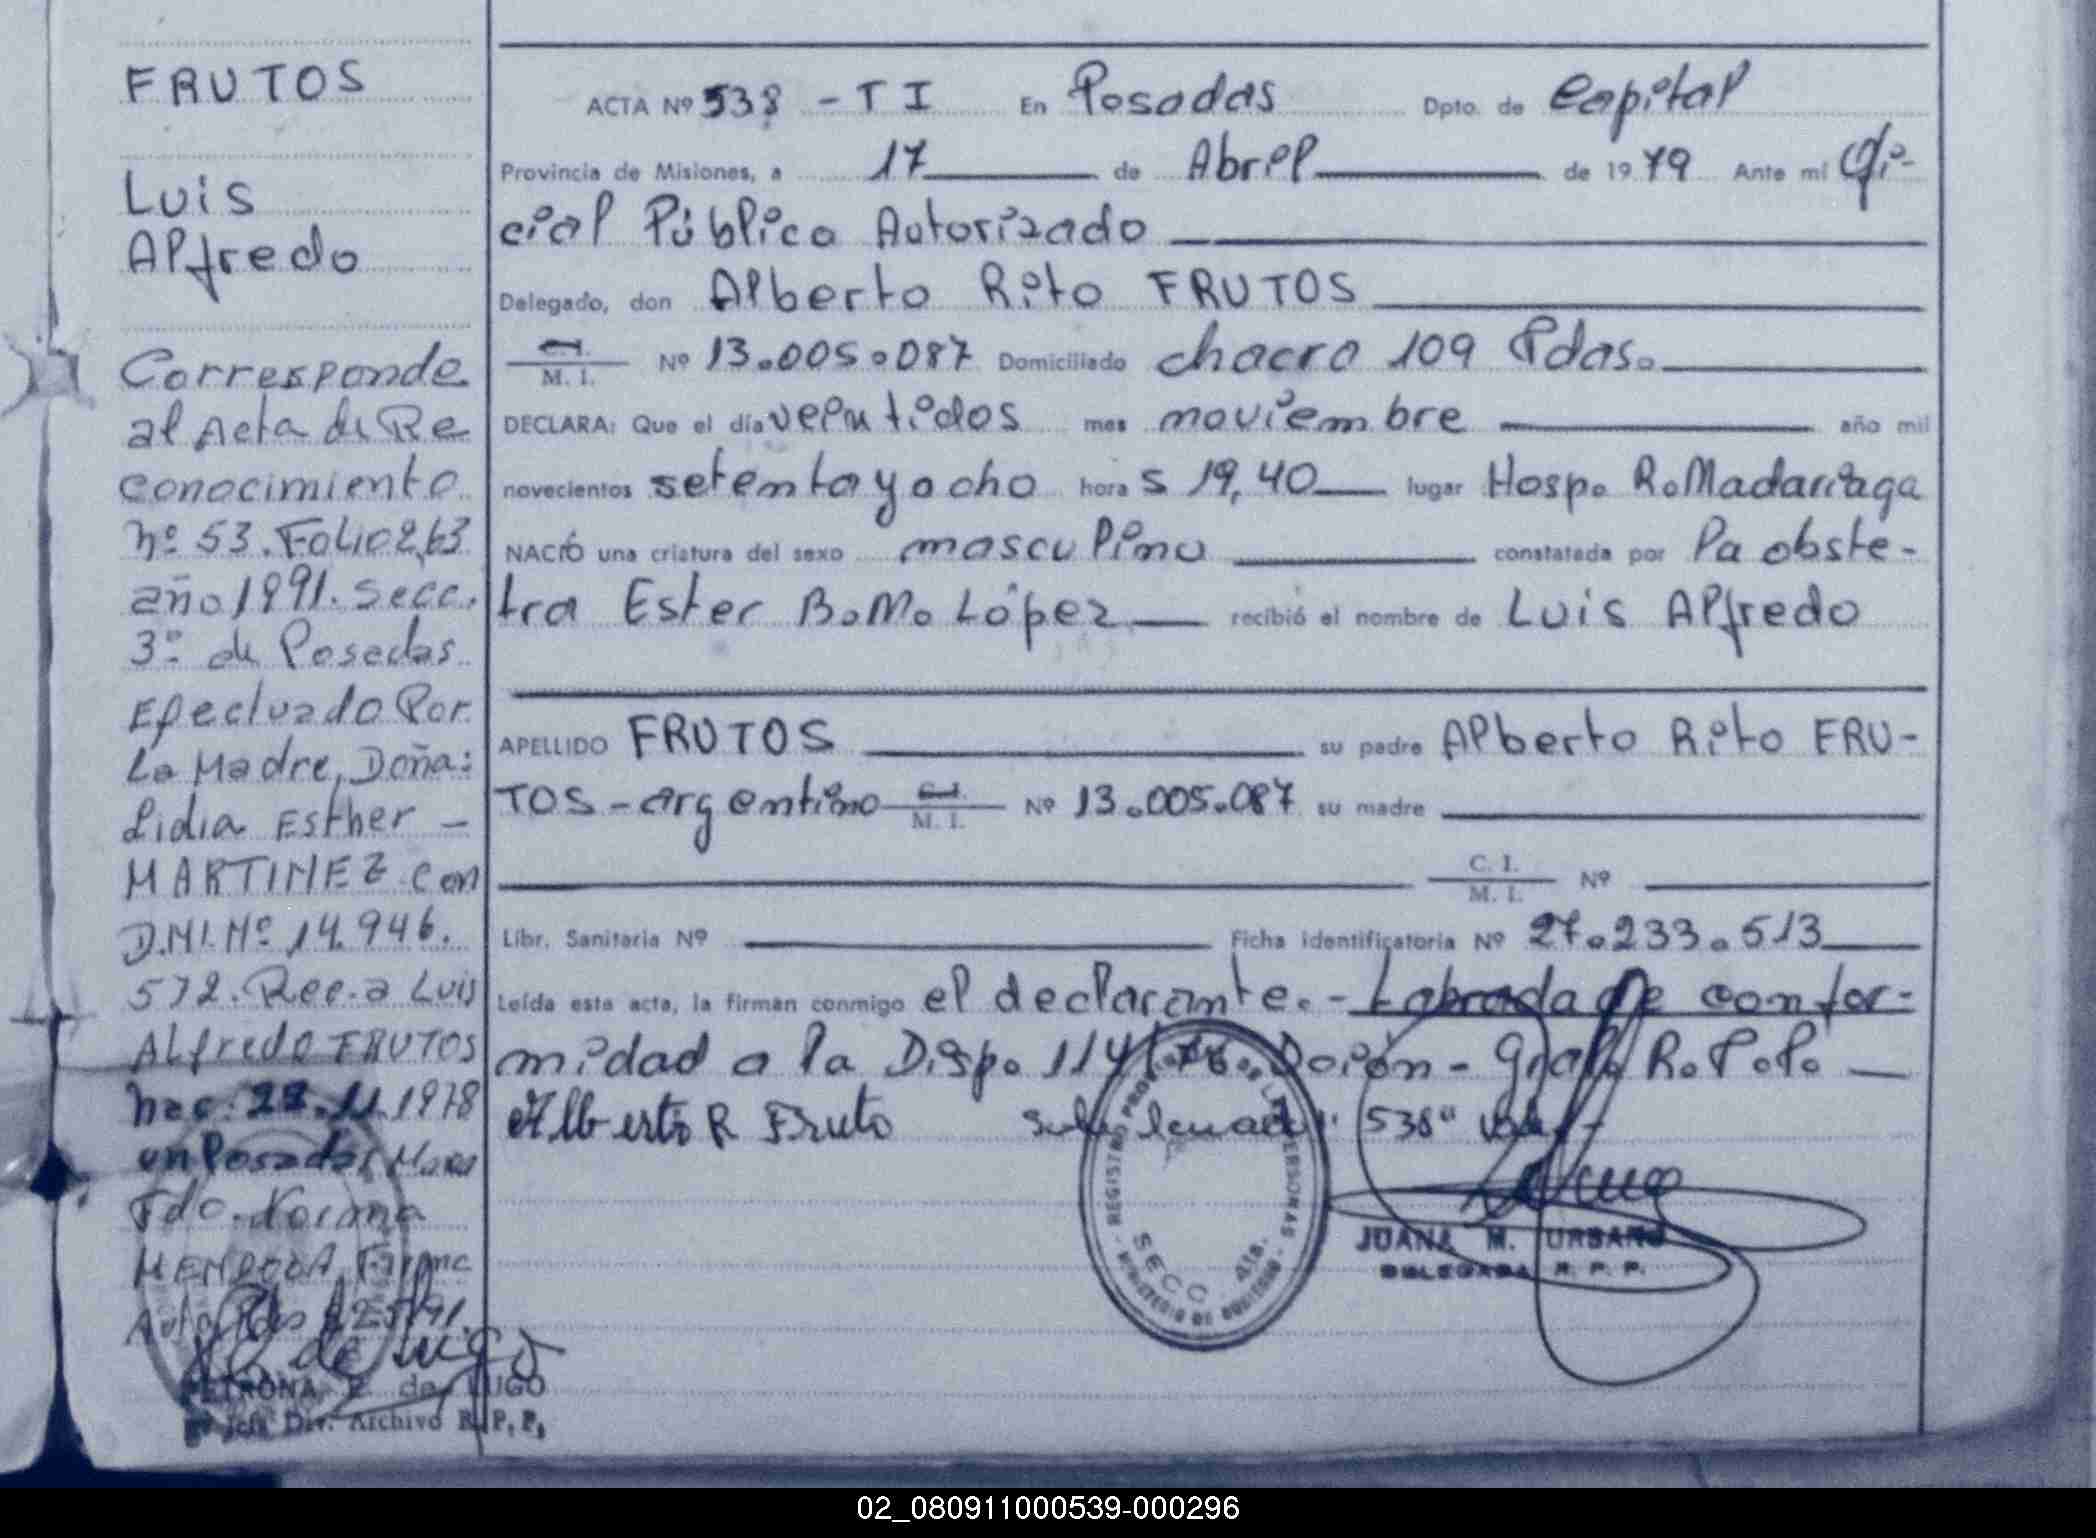 FRUTOS
Luis
Alfredo
Corresponde
al Acta de Re
conocimiento
Nº 53. Folio 263
año 1991. Secc.
3º de Posadas
Efectuado Por
La Madre, Doña:
Lidia Esther -
MARTINEZ con
D.N.I. Nº 14.946.
572. Rec. a Luis
Alfredo FRUTOS
Nac: 22.11.1978
en Posadas, Mnes
Fdo. Norma
MENDOZA Firma
Auto
PETRONA E. de LUGO
Jefa Div. Archivo R.P.P.
ACTA Nº 538 - T I En Posadas Dpto. de Capital
Provincia de Misiones, a 17 de Abril de 1979 Ante mí Ofi-
cial Público Autorizado
Delegado, don Alberto Rito FRUTOS
C.I. M. I. Nº 13.005.087 Domiciliado chacra 109 Pdas.
DECLARA: Que el día veintidos mes noviembre año mil
novecientos setenta y ocho hora s 19,40 lugar Hosp. R. Madariaga
NACIÓ una criatura del sexo masculino constatada por la obste-
tra Ester B.M. López recibió el nombre de Luis Alfredo
APELLIDO FRUTOS su padre Alberto Rito FRU-
TOS - argentino C.I. M. I. Nº 13.005.087 su madre
C. I. M. I. Nº
Libr. Sanitaria Nº Ficha identificatoria Nº 27.233.513
Leída esta acta, la firman conmigo el declarante. - Labrada de confor-
midad a la Disp. 114/76 Dción - Gral. R.P.P.
Alberto R Fruto 538" Vale
REGISTRO PROVINCIAL DE LAS PERSONAS - MINISTERIO DE GOBIERNO -
SECC. 4ta.
JUANA M. URBANO
DELEGADA R. P. P.
02_080911000539-000296